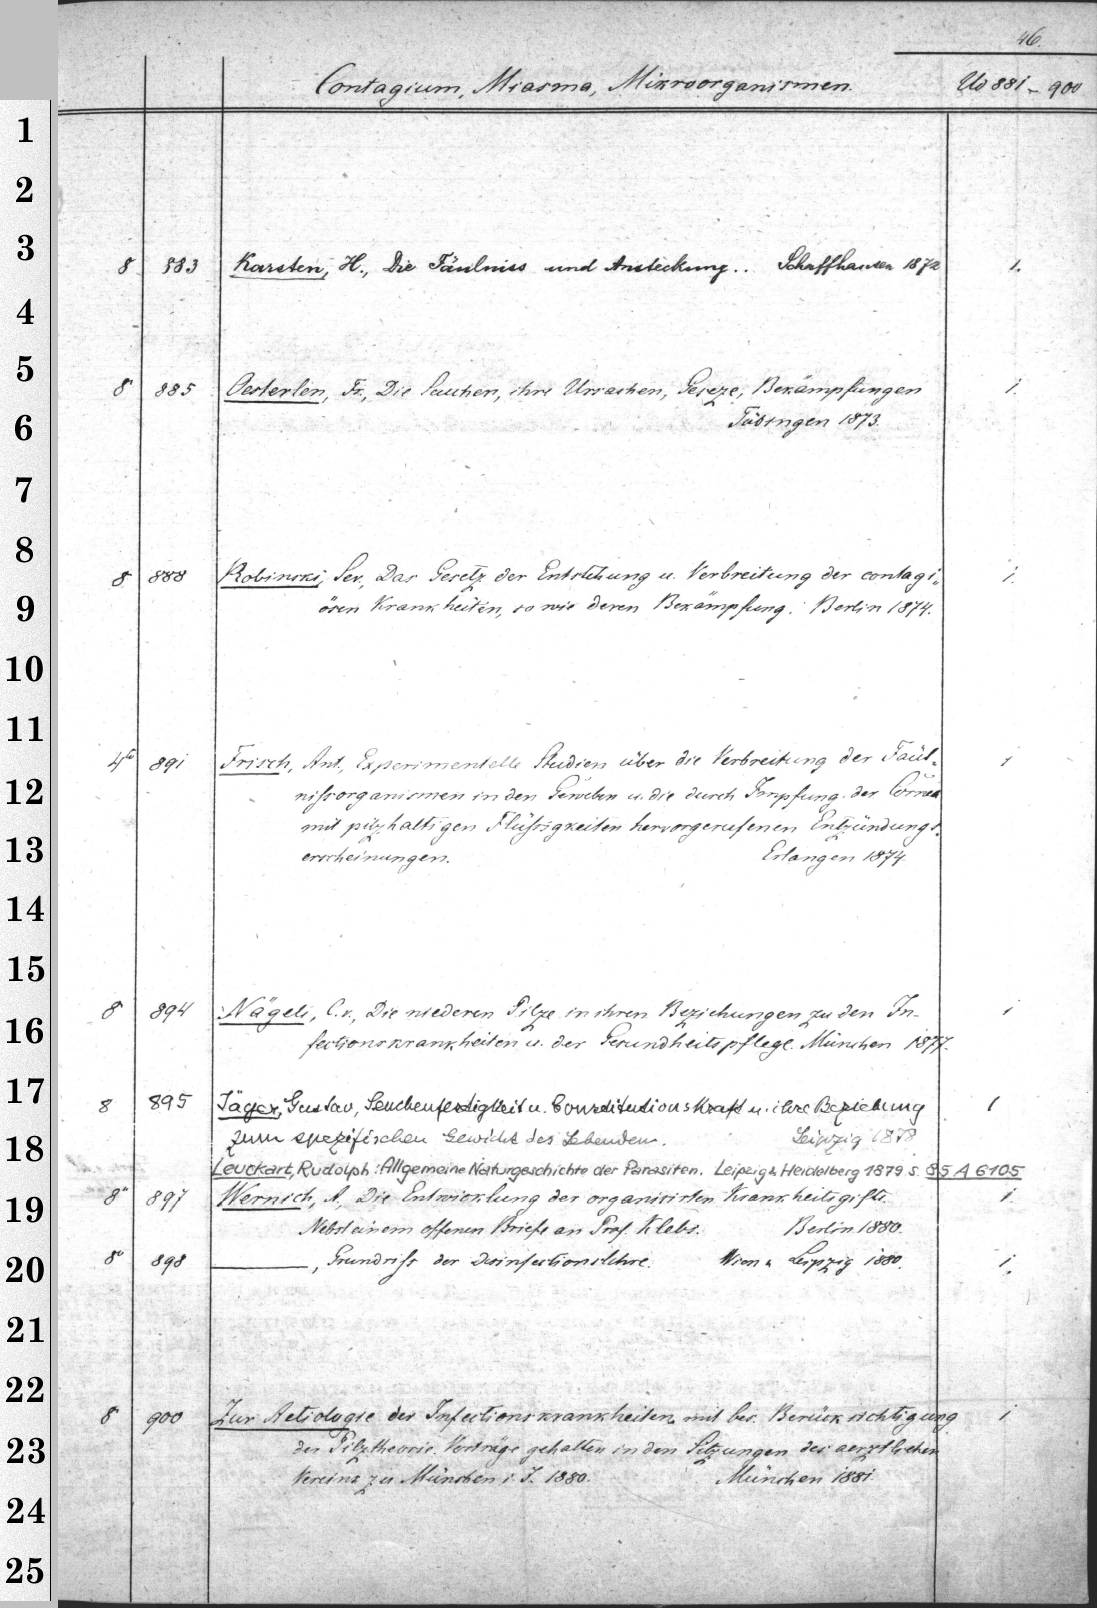 46.
Contagium, Miasma, Mikroorganismen. Ud 881 - 900
1
2
3
8 883 Karsten, H., Die Fäulniss und Ansteckung.. Schaffhausen 1872 1.
4
5
8° 885 Oesterlen, Fr., Die Seuchen, ihre Ursachen, Geseze, Bekämpfungen 1.
6
Tübingen 1873.
7
8
8 888 Robinski, Sev., Das Gesetz der Entstehung u. Verbreitung der contagi- 1.
9
ösen Krankheiten, so wie deren Bekämpfung. Berlin 1874.
10
11
4to 891 Frisch, Ant., Experimentelle Studien über die Verbreitung der Fäul- 1
12
nißorganismen in den Geweben u. die durch Impfung der Cornea
mit pilzhaltigen Flüßigkeiten hervorgerufenen Entzündungs-
13
erscheinungen. Erlangen 1874
14
15
8° 894 Nägeli, C. v., Die niederen Pilze in ihren Beziehungen zu den In- 1
16
fectionskrankheiten u. der Gesundheitspflege. München 1877.
17
8 895 Jäger, Gustav, Seuchenfestigkeit u. Constitutionskraft u. ihre Beziehung 1
18
zum spezifischen Gewicht des Lebenden. Leipzig 1878
Leuckart, Rudolph: Allgemeine Naturgeschichte der Parasiten. Leipzig & Heidelberg 1879 s. 85 A 6105
19
8° 897 Wernich, A., Die Entwicklung der organisirten Krankheitsgifte. 1.
Nebst einem offenen Briefe an Prof. Klebs. Berlin 1880.
20
8° 898 ———, Grundriß der Desinfectionslehre. Wien & Leipzig 1880. 1.
21
22
8° 900 Zur Aetiologie der Infectionskrankheiten mit bes. Berücksichtigung 1
23
der Pilztheorie. Vorträge gehalten in den Sitzungen des aerztlichen
Vereins zu München i. J. 1880. München 1881.
24
25